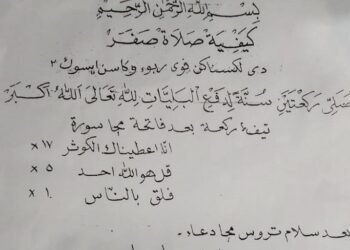 بِسْمِ اللهِ الرَّحْمٰنِ الرَّحِيْمِ
كَيْفِيَّة صَلَاة صَفَرْ
دي لكسناكن فوى ربوء وكاسن ايسوك ٢
صَلِّى رَكْعَتَيْنِ سُنَّةً لِدَفْعِ الْبَلِيَّاتِ لِلّٰهِ تَعَالَى اَللهُ اَكْبَرْ
تيفء ركعة بعد فاتحة مچا سورة
انا اعطيناك الكوثر ١٧ ×
قل هو الله احد ٥ ×
فلق بالناس ١ ×
بعد سلام تروس مچا دعاء .